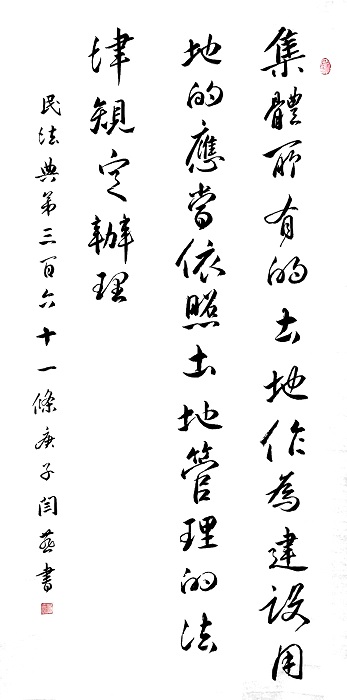 集體所有的土地作為建設用
地的應當依照土地管理的法
律規定辦理
民法典第三百六十一條庚子閆燕書